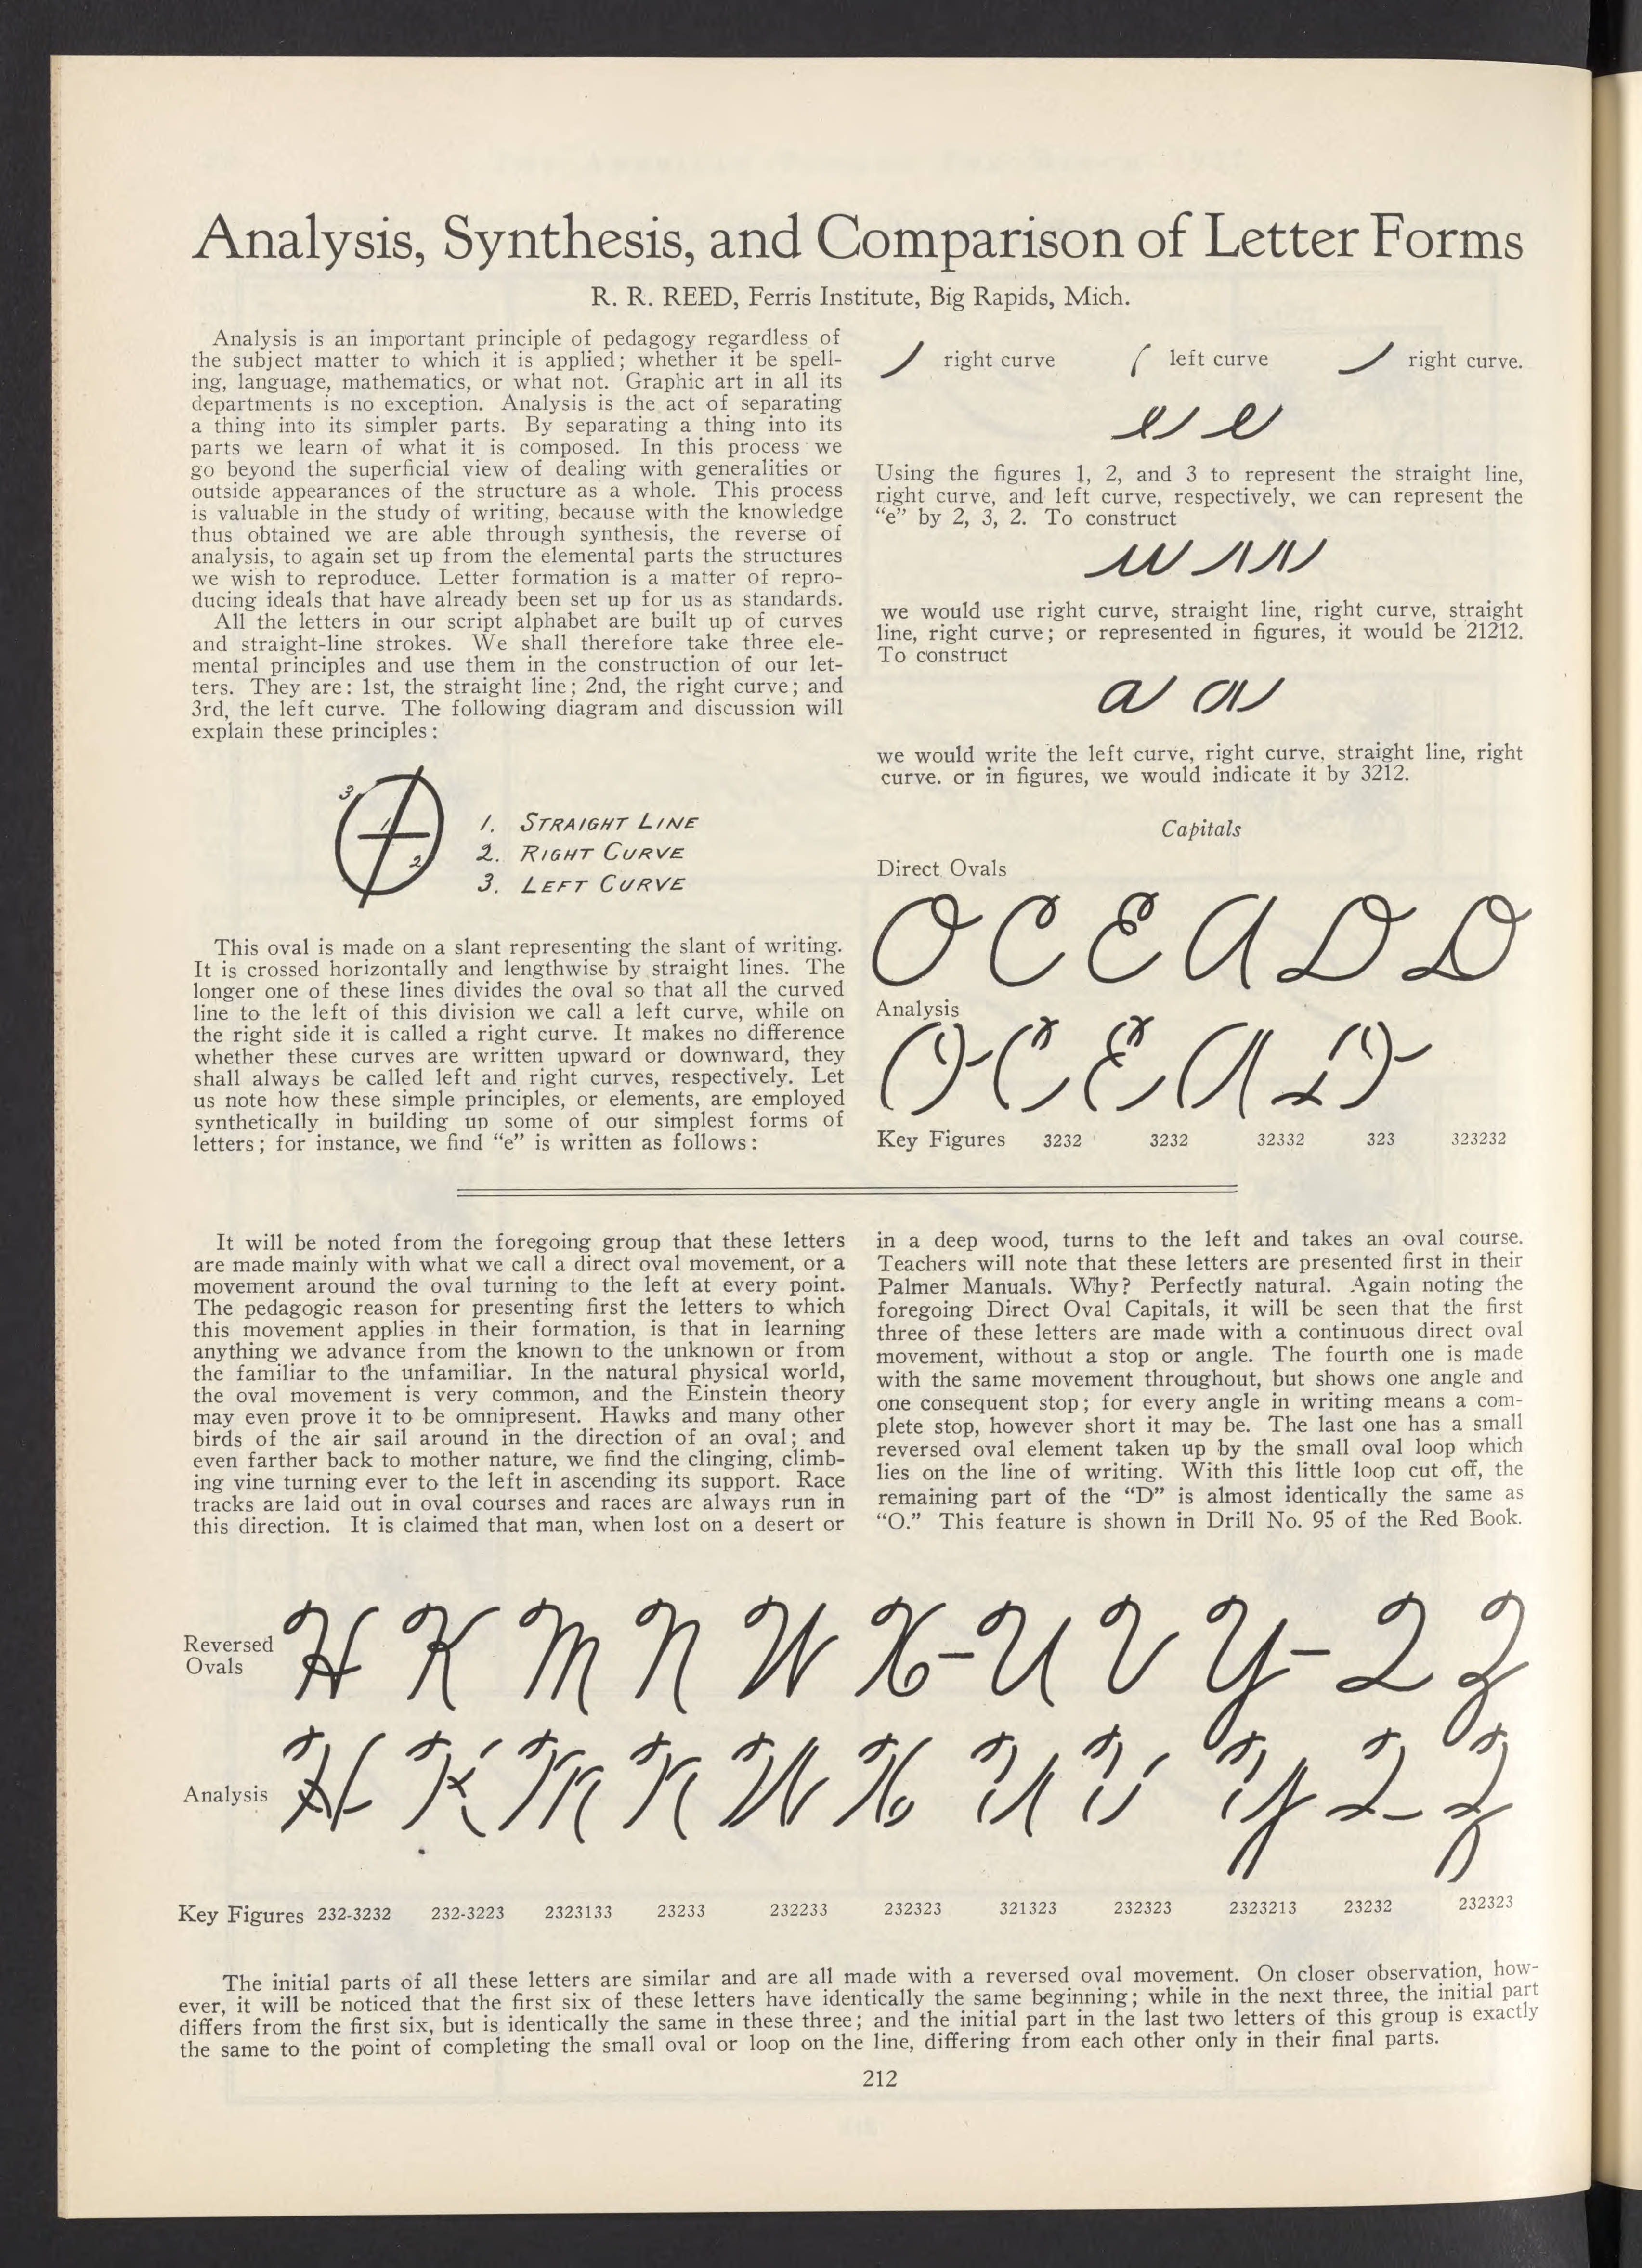 Analysis, Synthesis, and Comparison of Letter Forms
R. R. REED, Ferris Institute, Big Rapids, Mich.
Analysis is an important principle of pedagogy regardless of
the subject matter to which it is applied; whether it be spell-
ing, language, mathematics, or what not. Graphic art in all its
departments is no exception. Analysis is the act of separating
a thing into its simpler parts. By separating a thing into its
parts we learn of what it is composed. In this process we
go beyond the superficial view of dealing with generalities or
outside appearances of the structure as a whole. This process
is valuable in the study of writing, because with the knowledge
thus obtained we are able through synthesis, the reverse of
analysis, to again set up from the elemental parts the structures
we wish to reproduce. Letter formation is a matter of repro-
ducing ideals that have already been set up for us as standards.
All the letters in our script alphabet are built up of curves
and straight-line strokes. We shall therefore take three ele-
mental principles and use them in the construction of our let-
ters. They are: 1st, the straight line; 2nd, the right curve; and
3rd, the left curve. The following diagram and discussion will
explain these principles:
3
1
2
1. STRAIGHT LINE
2. RIGHT CURVE
3. LEFT CURVE
This oval is made on a slant representing the slant of writing.
It is crossed horizontally and lengthwise by straight lines. The
longer one of these lines divides the oval so that all the curved
line to the left of this division we call a left curve, while on
the right side it is called a right curve. It makes no difference
whether these curves are written upward or downward, they
shall always be called left and right curves, respectively. Let
us note how these simple principles, or elements, are employed
synthetically in building up some of our simplest forms of
letters; for instance, we find "e" is written as follows:
right curve left curve right curve.
e e
Using the figures 1, 2, and 3 to represent the straight line,
right curve, and left curve, respectively, we can represent the
"e" by 2, 3, 2. To construct
u u
we would use right curve, straight line, right curve, straight
line, right curve; or represented in figures, it would be 21212.
To construct
a a
we would write the left curve, right curve, straight line, right
curve. or in figures, we would indicate it by 3212.
Capitals
Direct Ovals
O C E A D D
Analysis
O C E A D
Key Figures 3232 3232 32332 323 323232
It will be noted from the foregoing group that these letters
are made mainly with what we call a direct oval movement, or a
movement around the oval turning to the left at every point.
The pedagogic reason for presenting first the letters to which
this movement applies in their formation, is that in learning
anything we advance from the known to the unknown or from
the familiar to the unfamiliar. In the natural physical world,
the oval movement is very common, and the Einstein theory
may even prove it to be omnipresent. Hawks and many other
birds of the air sail around in the direction of an oval; and
even farther back to mother nature, we find the clinging, climb-
ing vine turning ever to the left in ascending its support. Race
tracks are laid out in oval courses and races are always run in
this direction. It is claimed that man, when lost on a desert or
in a deep wood, turns to the left and takes an oval course.
Teachers will note that these letters are presented first in their
Palmer Manuals. Why? Perfectly natural. Again noting the
foregoing Direct Oval Capitals, it will be seen that the first
three of these letters are made with a continuous direct oval
movement, without a stop or angle. The fourth one is made
with the same movement throughout, but shows one angle and
one consequent stop; for every angle in writing means a com-
plete stop, however short it may be. The last one has a small
reversed oval element taken up by the small oval loop which
lies on the line of writing. With this little loop cut off, the
remaining part of the "D" is almost identically the same as
"O." This feature is shown in Drill No. 95 of the Red Book.
Reversed
Ovals
H K M N W X-U V Y-Q Z
Analysis
H K M N W X U V Y Q Z
Key Figures 232-3232 232-3223 2323133 23233 232233 232323 321323 232323 2323213 23232 232323
The initial parts of all these letters are similar and are all made with a reversed oval movement. On closer observation, how-
ever, it will be noticed that the first six of these letters have identically the same beginning; while in the next three, the initial part
differs from the first six, but is identically the same in these three; and the initial part in the last two letters of this group is exactly
the same to the point of completing the small oval or loop on the line, differing from each other only in their final parts.
212